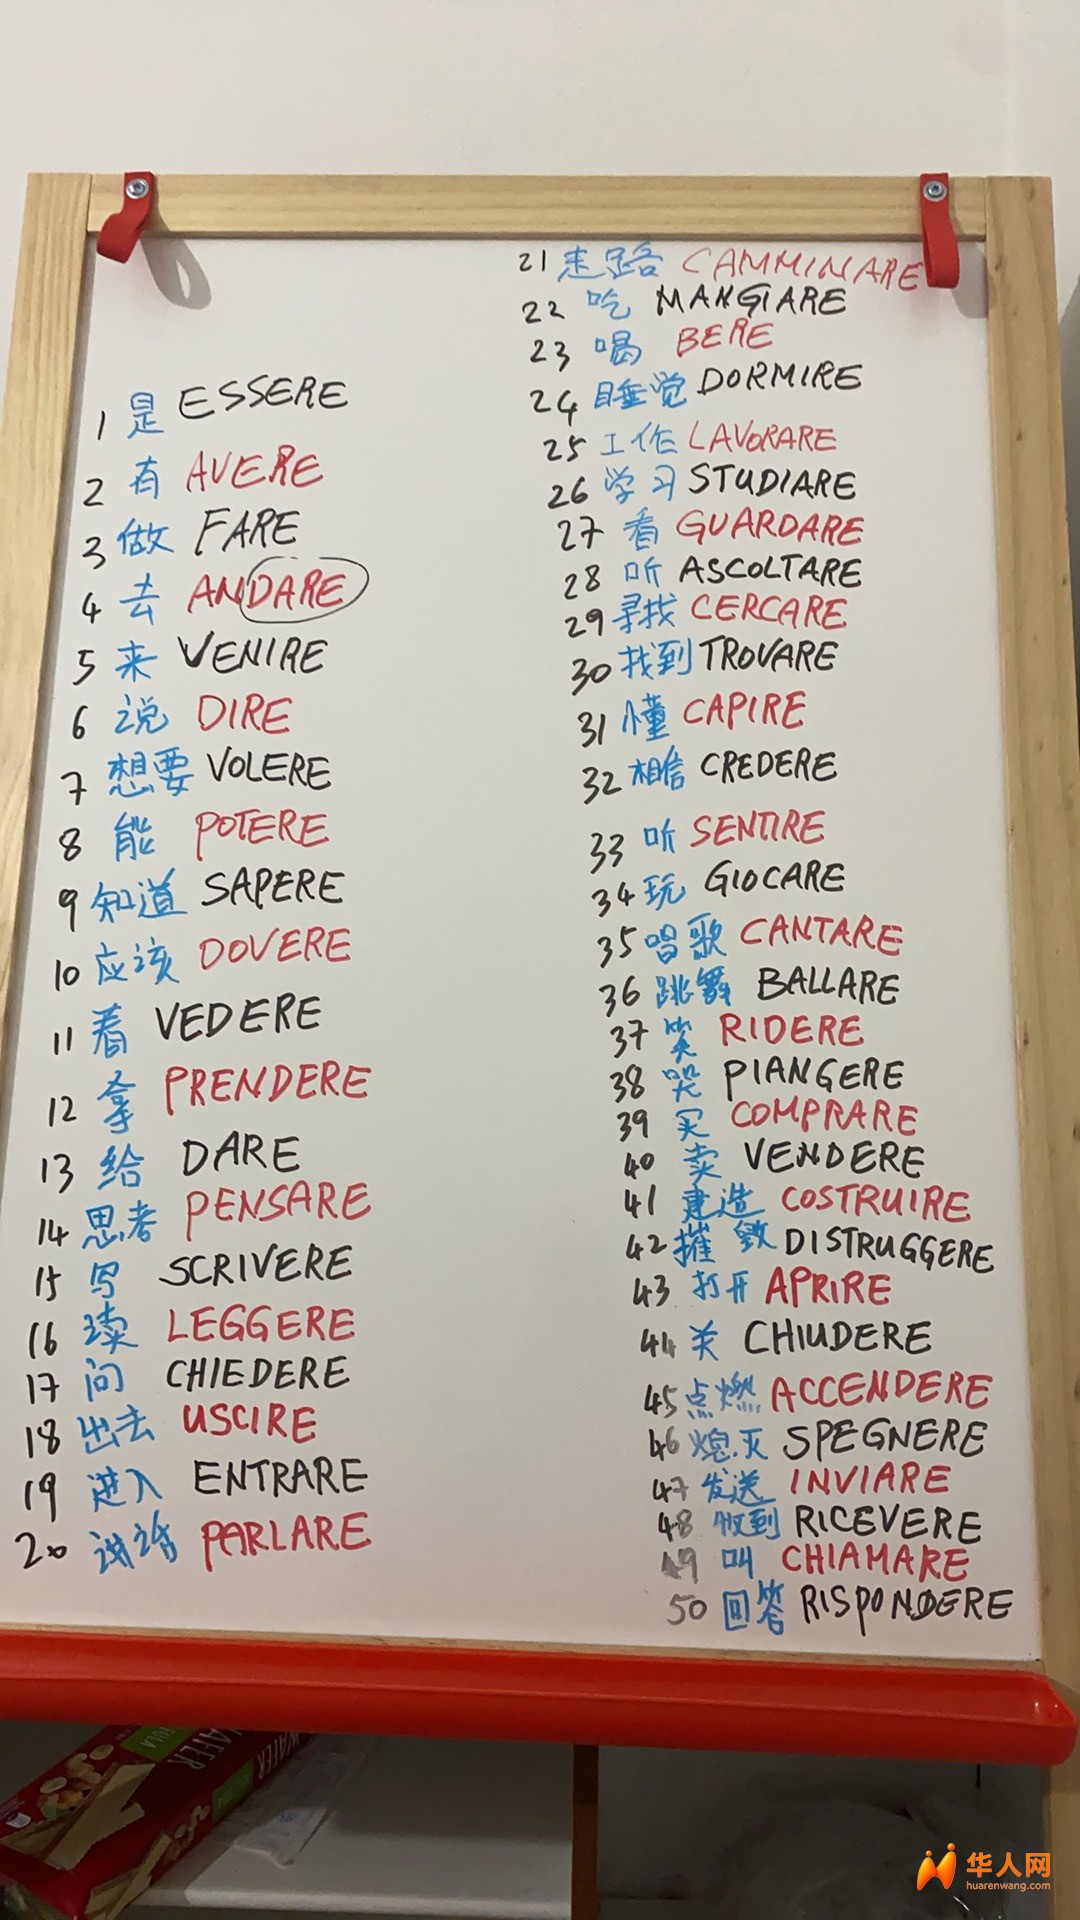 1 是 ESSERE
2 有 AVERE
3 做 FARE
4 去 ANDARE
5 来 VENIRE
6 说 DIRE
7 想要 VOLERE
8 能 POTERE
9 知道 SAPERE
10 应该 DOVERE
11 看 VEDERE
12 拿 PRENDERE
13 给 DARE
14 思考 PENSARE
15 写 SCRIVERE
16 读 LEGGERE
17 问 CHIEDERE
18 出去 USCIRE
19 进入 ENTRARE
20 说话 PARLARE
21 走路 CAMMINARE
22 吃 MANGIARE
23 喝 BERE
24 睡觉 DORMIRE
25 工作 LAVORARE
26 学习 STUDIARE
27 看 GUARDARE
28 听 ASCOLTARE
29 寻找 CERCARE
30 找到 TROVARE
31 懂 CAPIRE
32 相信 CREDERE
33 听 SENTIRE
34 玩 GIOCARE
35 唱歌 CANTARE
36 跳舞 BALLARE
37 笑 RIDERE
38 哭 PIANGERE
39 买 COMPRARE
40 卖 VENDERE
41 建造 COSTRUIRE
42 摧毁 DISTRUGGERE
43 打开 APRIRE
44 关 CHIUDERE
45 点燃 ACCENDERE
46 熄灭 SPEGNERE
47 发送 INVIARE
48 收到 RICEVERE
49 叫 CHIAMARE
50 回答 RISPONDERE
WAFER
华人网
huarenwang.com